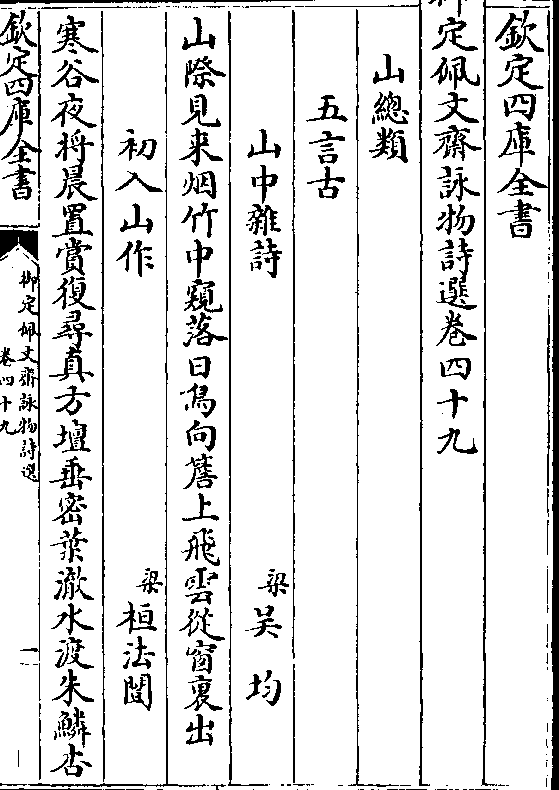 欽定四庫全書
御定佩文齋詠物詩選卷四十九
山總類
五言古
山中雜詩
梁 吴均
山際見来烟竹中窺落日鳥向簷上飛雲從窗裏出
初入山作
梁 桓法闓
寒谷夜將晨置賞復尋真方壇垂密葉澈水渡朱鱗杏
欽定四庫全書
御定佩文齋詠物詩選
卷四十九
一